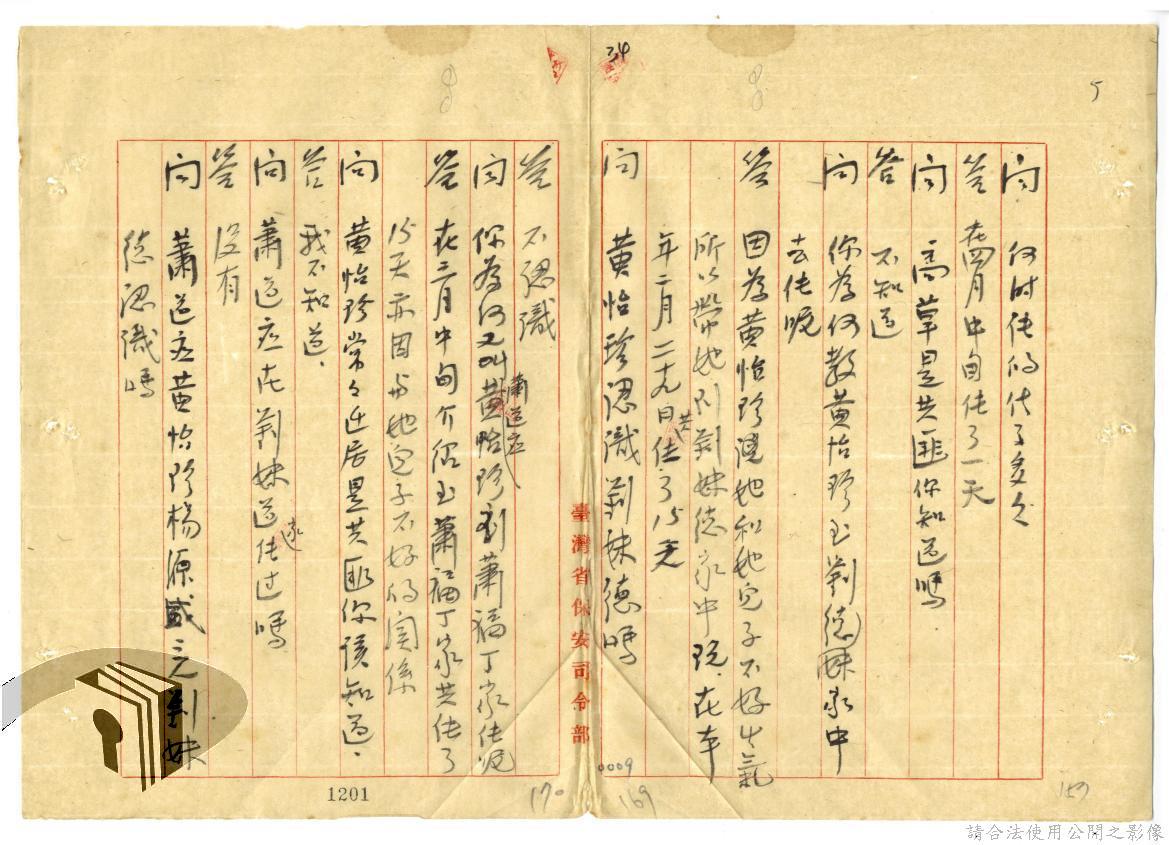 34
5
問 何時住的代了多久
答 在四月中旬住了一天
問 高草是共匪你知道嗎
答 不知道
問 你為何教黃怡珍至劉德妹家中
去住呢
答 因為黃怡珍講她和她兒子不好生氣
所以帶她到劉妹德家中玩.在本
年二月二十九日共住了15天
問 黃怡珍認識劉妹德嗎
0009
169
157
臺灣省保安司令部
答 不認識
問 你為何又叫黃怡珍到蕭福丁家住呢
蕭道應
答 在三月中旬介紹至蕭福丁家共住了
15天亦因為她兒子不好的関係
問 黃怡珍常々迁居是共匪你該知道.
答 我不知道.
問 蕭道應在劉妹道住过嗎
遠
答 沒有
問 蕭道应黃怡珍楊源盛之劉妹
德認識嗎
1201
170
請合法使用公開之影像